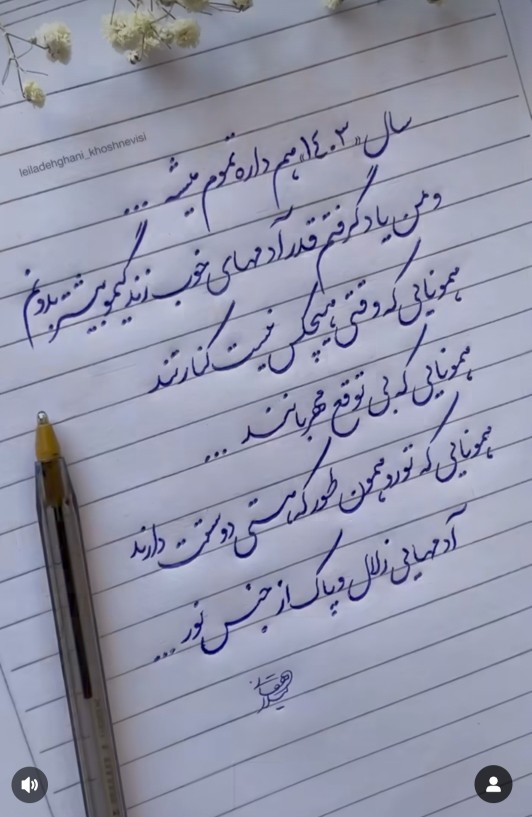 leiladehghani_khoshnevisi
سال «۱۴۰۳» هم داره تموم میشه ...
و من یاد گرفتم قدر آدمهای خوب زندگیمو بیشتر بدونم
همونایی که وقتی هیچکس نیست کنارتند
همونایی که بی توقع مهربانند ...
همونایی که تورو همون طور که هستی دوستت دارند
آدمهایی زلال و پاک از جنس نور ...